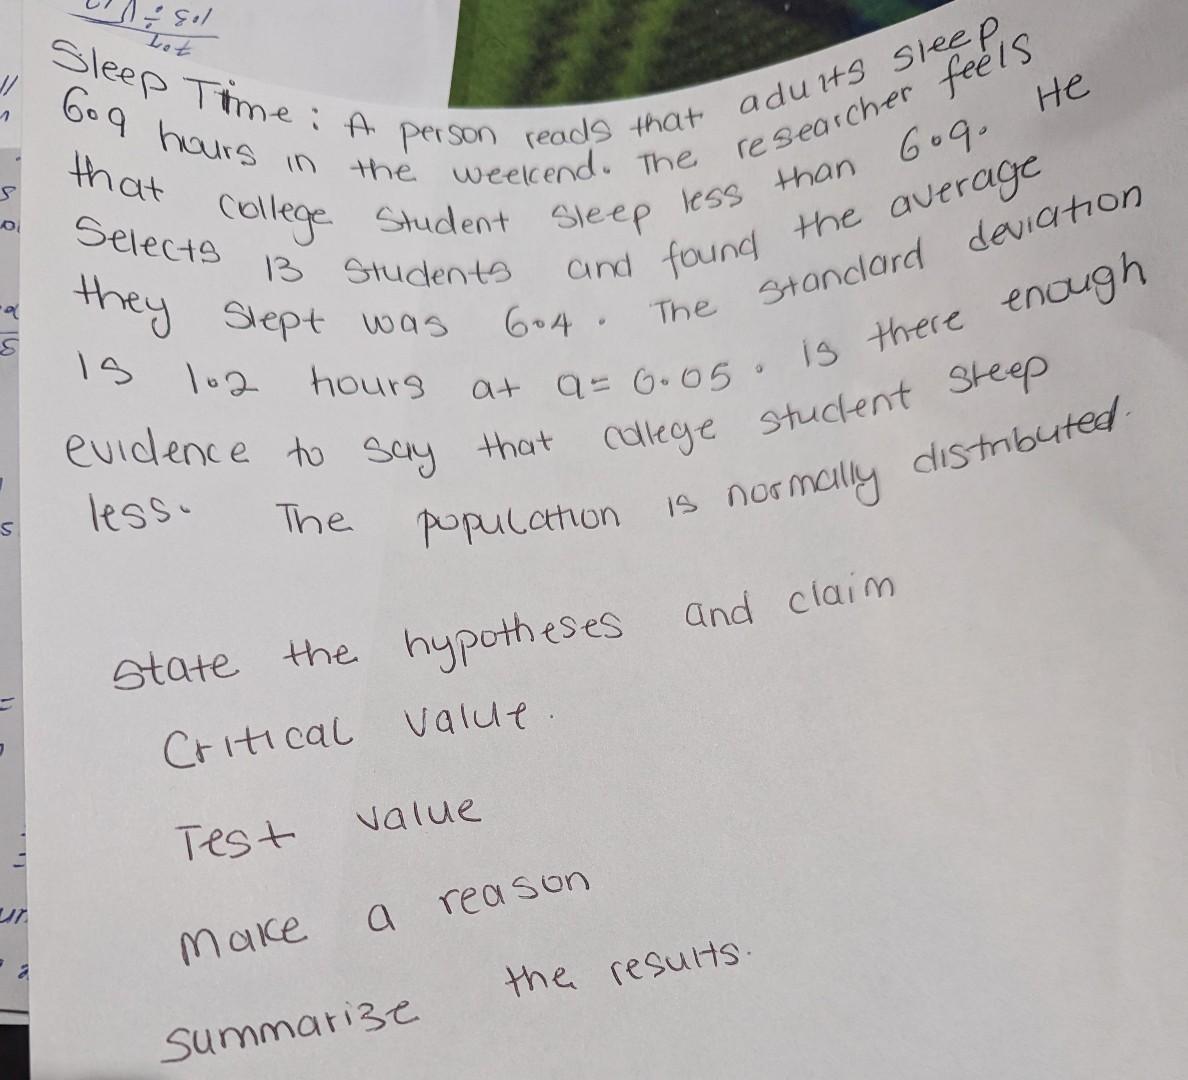 Sleep Time: A person reads that adults sleep
6.9 hours in the weekend. The researcher feels
that college student sleep less than 6.9. He
Selects 13 students and found the average
they slept was 6.4. The standard deviation
is 1.2 hours at a = 0.05. is there enough
evidence to say that college student sleep
less. The population is normally distributed.
State the hypotheses and claim
Critical value.
Test value
Make a reason
summarize the results.